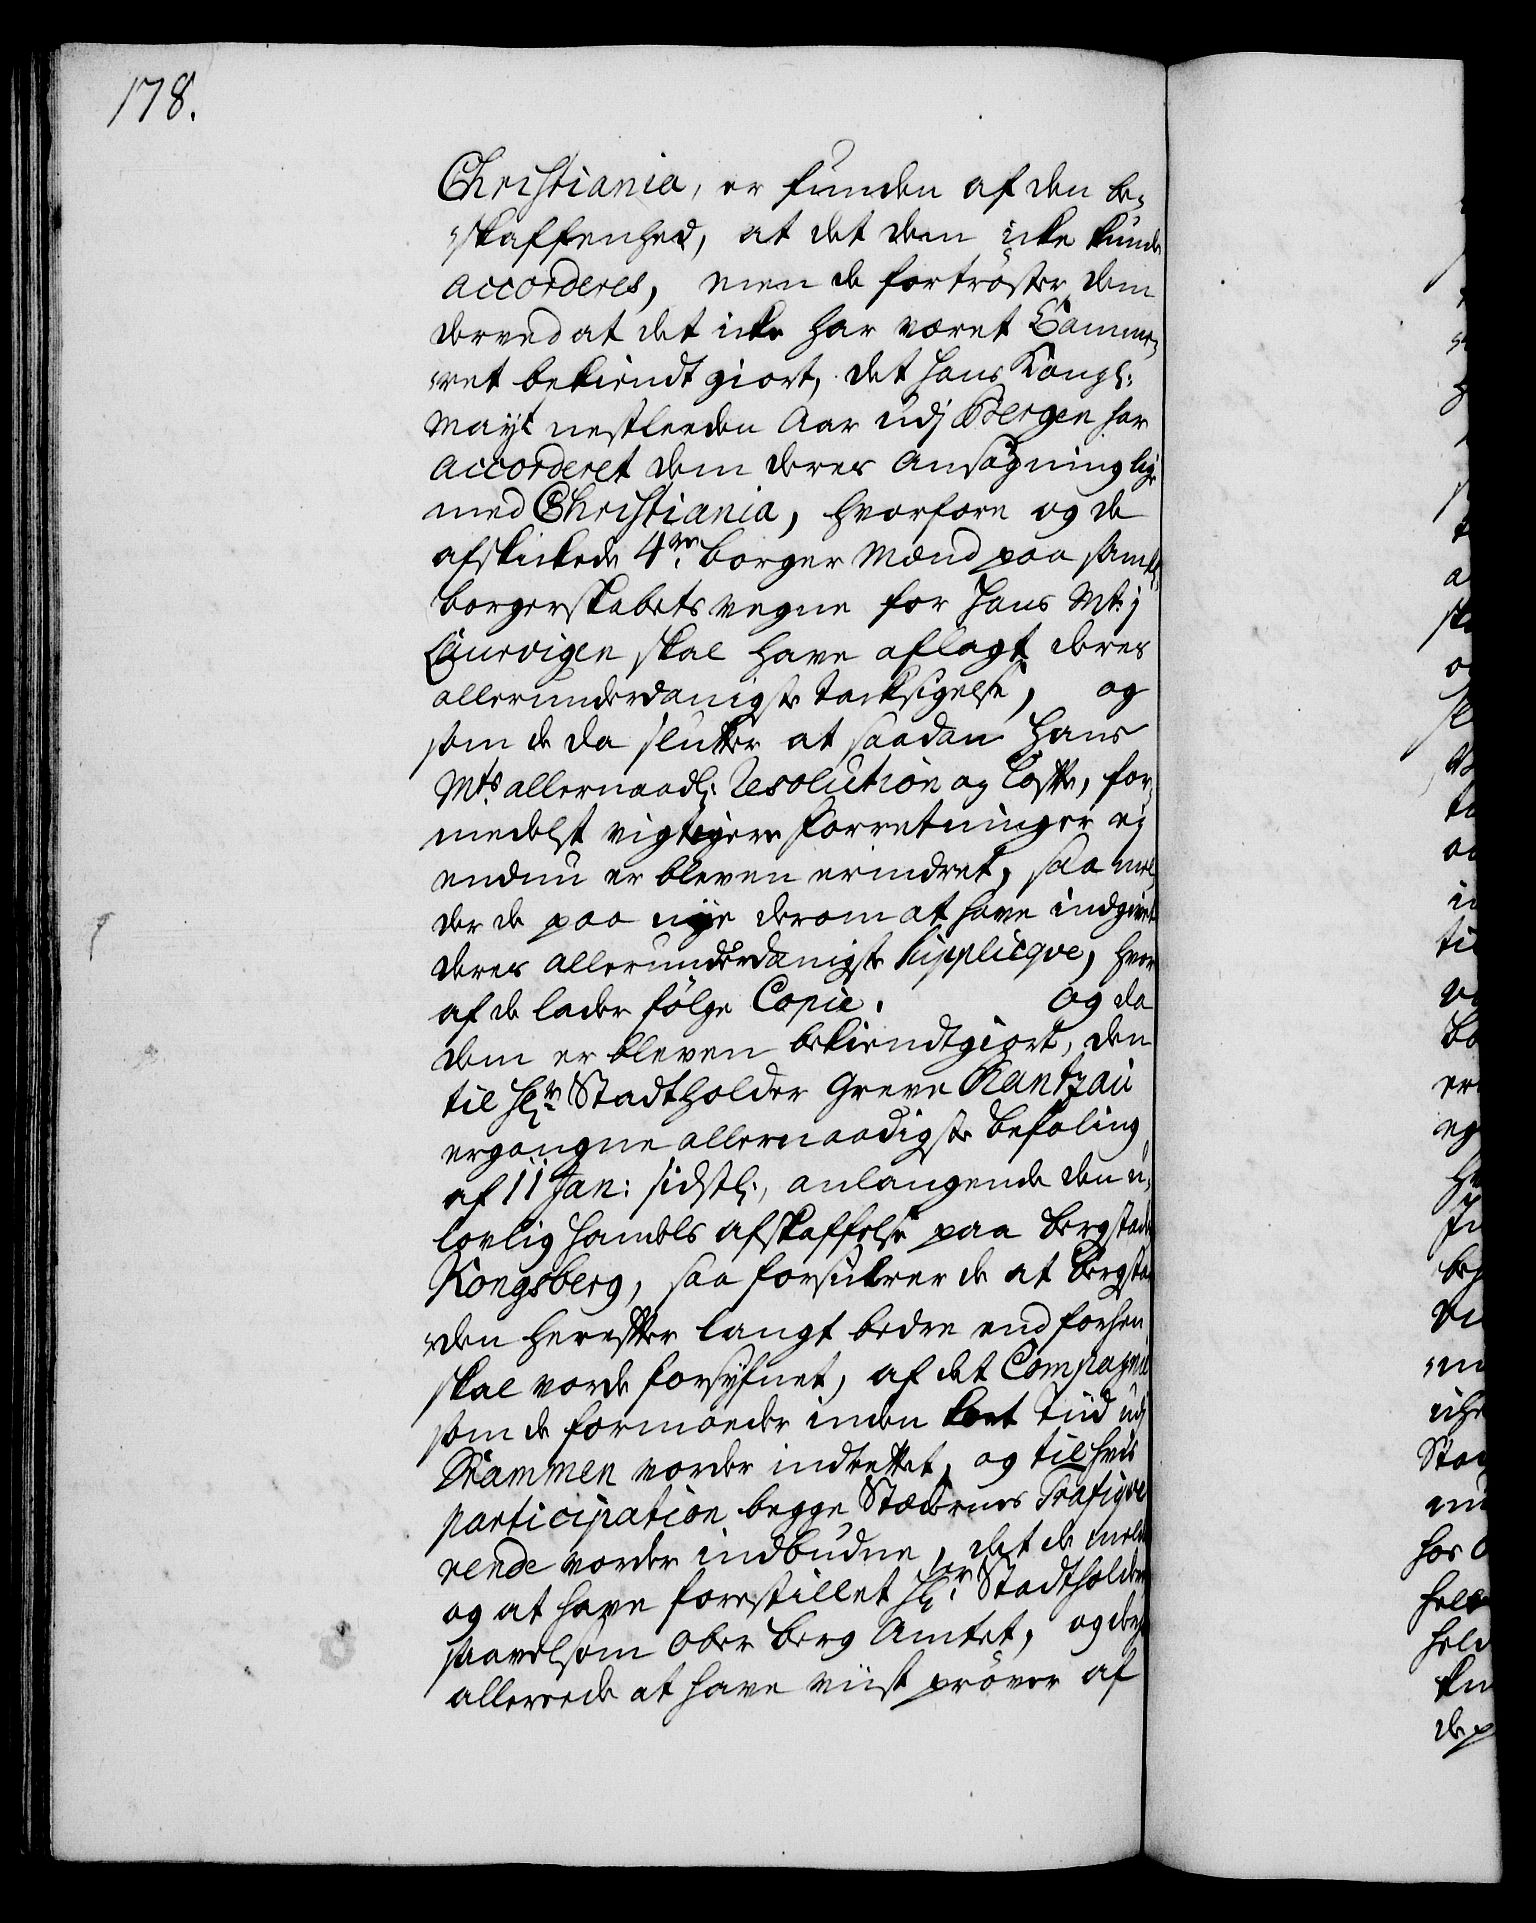 178.
Christiania, er funden af den be-
skaffenhed, at det dem icke kunde
accorderes, men de fortrøster dem
derved at det icke har været Camme-
ret bekiendt giort, det hans Kongl:
Mayt nestleeden Aar udj Bergen har
accorderet dem deres Ansøgning lige
med Christiania, hvorfore og de
afskickede 4re borger Mænd paa samtl:
borgerskabets vegne for Hans Mt: j
Laurvigen skal have aflagt deres
allerunderdanigste tacksigelse, og
som de da slutter at saadan Hans
Mts allernaadl: Resolution og Løfte, for-
medelst vigtigere forretninger ej
endnu er bleven erindret, saa mel-
der de paa nye derom at have indgivet
deres allerunderdanigste Supplicqve, hvor
af de lader følge Copie. Og da
dem er bleven bekiendtgiort, den
til Hr: Stadtholder Greve Rantzau
ergangne allernaadigste befaling
af 11 Jan: sidstl:, anlangende den u-
lovlig handels afskaffelse paa bergstaden
Kongsberg, saa forsikrer de at bergsta-
den herefter langt bedre end forhen
skal vorde forsynet, af det Compagnie
som de formoeder inden kort Tiid udj
Drammen vorder indrettet, og til hvis
participation begge Stædernes Trafiqve-
rende vorder indbudne, det de melder
og at have forestillet Hr: Stadtholderen
saavelsom Ober berg Amtet, og der
allereede at have viist prøver af